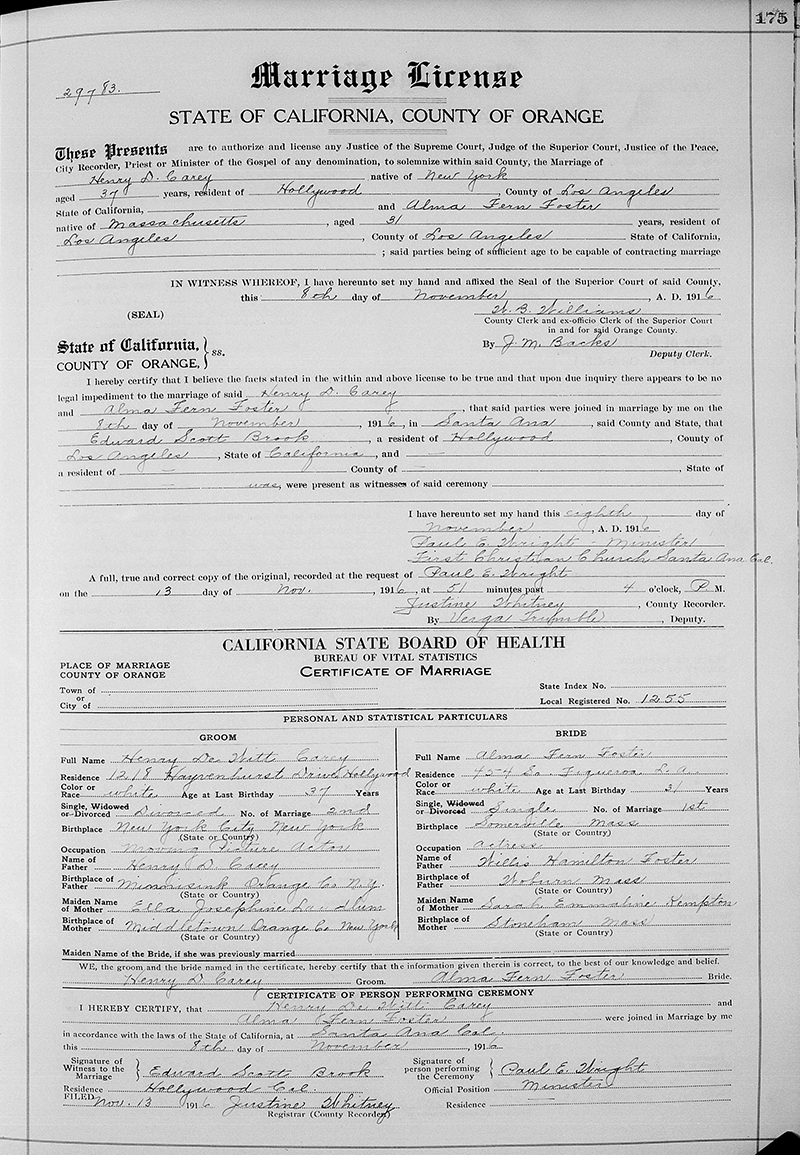 175
29783.
Marriage License
STATE OF CALIFORNIA, COUNTY OF ORANGE
These Presents are to authorize and license any Justice of the Supreme Court, Judge of the Superior Court, Justice of the Peace,
City Recorder, Priest or Minister of the Gospel of any denomination, to solemnize within said County, the Marriage of
Henry D. Carey native of New York
aged 37 years, resident of Hollywood, County of Los Angeles
State of California, and Alma Fern Foster
native of Massachusetts, aged 31 years, resident of
Los Angeles, County of Los Angeles State of California,
; said parties being of sufficient age to be capable of contracting marriage
IN WITNESS WHEREOF, I have hereunto set my hand and affixed the Seal of the Superior Court of said County,
this 8th day of November, A. D. 1916
(SEAL) W. B. Williams
County Clerk and ex-officio Clerk of the Superior Court
in and for said Orange County.
By J. M. Backs
Deputy Clerk.
State of California,
COUNTY OF ORANGE, } ss.
I hereby certify that I believe the facts stated in the within and above license to be true and that upon due inquiry there appears to be no
legal impediment to the marriage of said Henry D. Carey
and Alma Fern Foster, that said parties were joined in marriage by me on the
8th day of November, 1916, in Santa Ana, said County and State, that
Edward Scott Brook, a resident of Hollywood, County of
Los Angeles, State of California, and —
a resident of — County of —, State of
was, were present as witnesses of said ceremony
I have hereunto set my hand this eighth day of
November, A. D. 1916
Paul E. Wright - Minister
First Christian Church Santa Ana Cal.
A full, true and correct copy of the original, recorded at the request of Paul E. Wright
on the 13 day of Nov., 1916, at 51 minutes past 4 o'clock, P. M.
Justine Whitney, County Recorder.
By Verga Trumble, Deputy.
CALIFORNIA STATE BOARD OF HEALTH
BUREAU OF VITAL STATISTICS
CERTIFICATE OF MARRIAGE
PLACE OF MARRIAGE
COUNTY OF ORANGE
Town of
or
City of
State Index No.
Local Registered No. 1255
PERSONAL AND STATISTICAL PARTICULARS
GROOM
Full Name Henry De Witt Carey
Residence 1218 Hayvenhurst Drive, Hollywood
Color or Race white Age at Last Birthday 37 Years
Single, Widowed or Divorced Divorced No. of Marriage 2nd
Birthplace New York City New York
(State or Country)
Occupation Moving Picture Actor
Name of Father Henry D. Carey
Birthplace of Father Minnisink Orange Co N.Y.
(State or Country)
Maiden Name of Mother Ella Josephine
Birthplace of Mother Middletown Orange Co New York
(State or Country)
BRIDE
Full Name Alma Fern Foster
Residence 454 So. Figueroa L. A.
Color or Race white Age at Last Birthday 31 Years
Single, Widowed or Divorced Single No. of Marriage 1st
Birthplace Somerville Mass
(State or Country)
Occupation Actress
Name of Father Willis Hamilton Foster
Birthplace of Father Woburn Mass
(State or Country)
Maiden Name of Mother Sarah Emmaline Kempton
Birthplace of Mother Stoneham Mass
(State or Country)
Maiden Name of the Bride, if she was previously married
WE, the groom and the bride named in the certificate, hereby certify that the information given therein is correct, to the best of our knowledge and belief.
Henry D Carey Groom. Alma Fern Foster Bride.
CERTIFICATE OF PERSON PERFORMING CEREMONY
I HEREBY CERTIFY, that Henry De Witt Carey and
Alma Fern Foster were joined in Marriage by me
in accordance with the laws of the State of California, at Santa Ana Cal.
this 8th day of November, 1916
Signature of Witness to the Marriage } Edward Scott Brook
Residence Hollywood Cal.
Signature of person performing the Ceremony { Paul E. Wright
Official Position Minister
FILED Nov. 13 1916 Justine Whitney
Registrar (County Recorder)
Residence —